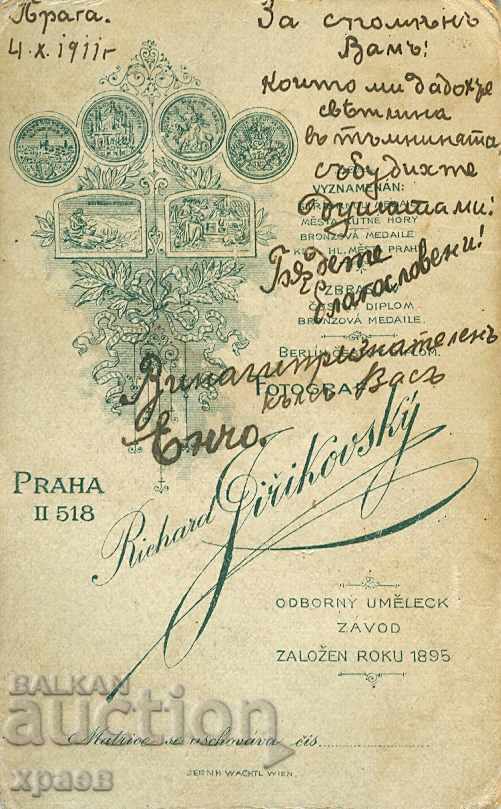 Прага.
4.X.1911г
За споменъ
Вамъ!
които ми дадохте
свѣтлина
въ тъмнината,
събудихте
душата ми!
Бѫдете
благословени!
Винаги признателенъ
къмъ Васъ
Енчо.
VYZNAMENÁN:
MĚSTA KUTNÉ HORY
BRONZOVÁ MEDAILE
KRÁL. HL. MĚST. PRAHY
DIPLOM.
BRONZOVÁ MEDAILE.
BERLÍN
FOTOGRAF
PRAHA
II 518
Richard Jiřikovský
ODBORNÝ UMĚLECK
ZÁVOD
ZALOŽEN ROKU 1895
Matrice se uschovává čís.
JERNH WACHTL WIEN.
BALKAN
auction
храов